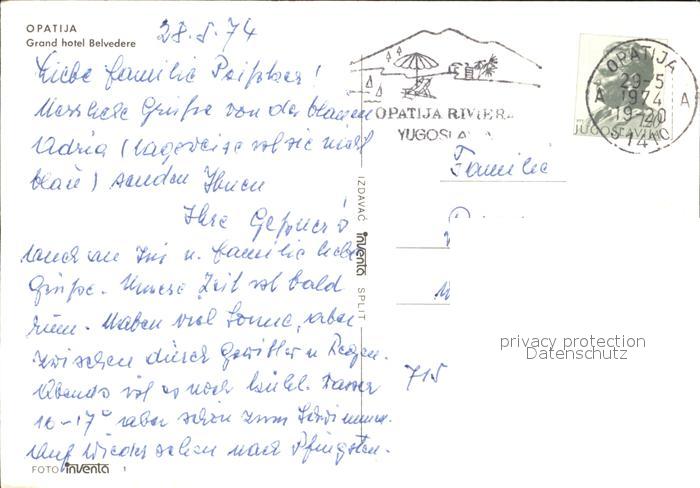 OPATIJA
Grand hotel Belvedere
28.5.74
Liebe Familie
Herzliche Grüße von der blauen
Adria (tagsweise ist sie nicht
blau) senden Ihnen
Ihre
auch an Iris u. Familie liebe
Grüße. Unsere Zeit ist bald
um. Haben viel Sonne, aber
zwischen durch Gewitter u Regen.
Abends ist es noch kühl. Wasser
16-17° aber schön zum Schwimmen.
Auf Wiedersehen nach Pfingsten.
FOTO inventa 1
IZDAVAČ inventa SPLIT
OPATIJA RIVIERA
YUGOSLAVIA
OPATIJA
29-5
1974
19-20
A A
JUGOSLAVIJA
Familie
715
privacy protection
Datenschutz